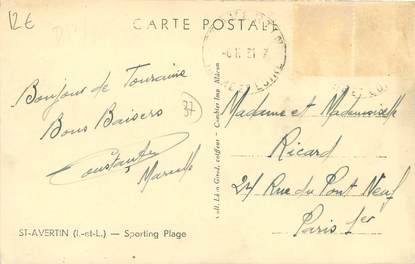 12€
CARTE POSTALE
Bonjour de Touraine
Bons Baisers
37
Constantin
Marcelle
Madame et Mademoiselle
Ricard
24 Rue du Pont Neuf
Paris 1er
ST-AVERTIN (I.-et-L.) — Sporting Plage
Combier Imp. Mâcon